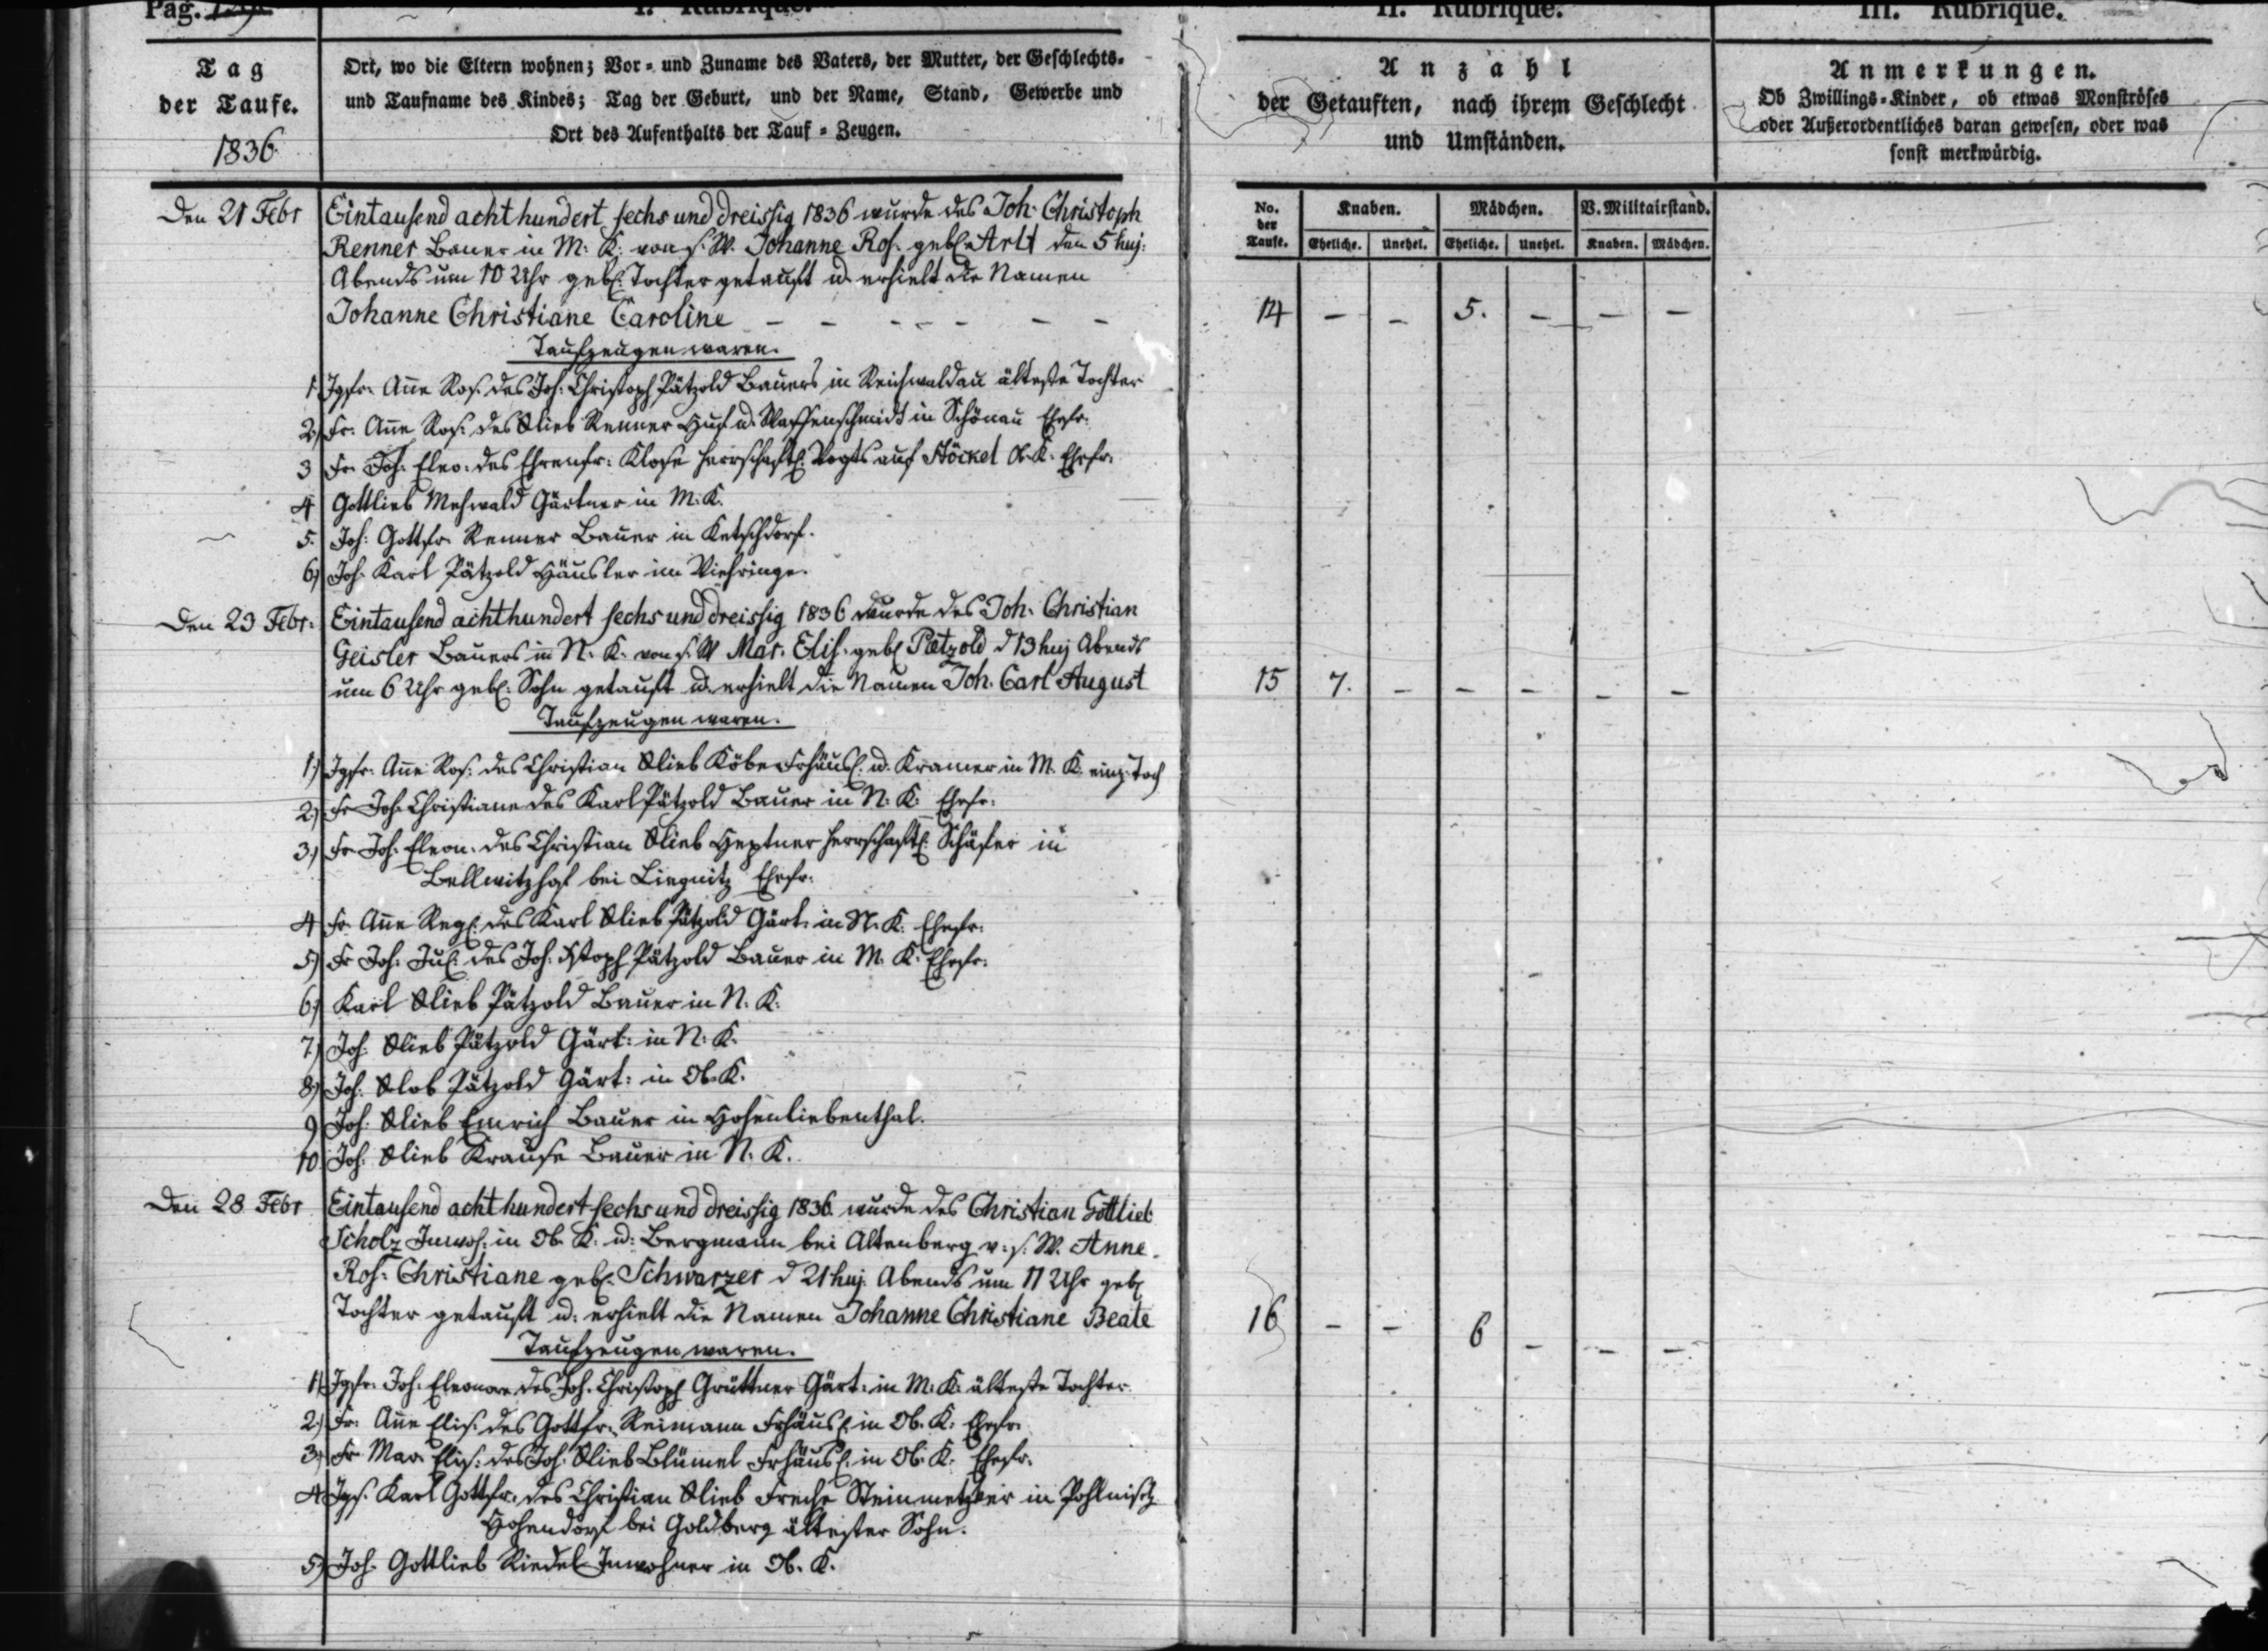 Pag.
I. Rubrique.
Tag
der Taufe.
1836
Ort, wo die Eltern wohnen; Vor- und Zuname des Vaters, der Mutter, der Geschlechts-
und Taufname des Kindes; Tag der Geburt, und der Name, Stand, Gewerbe und
Ort des Aufenthalts der Tauf-Zeugen.
Den 21 Febr
Eintausend acht hundert sechs und dreissig 1836 wurde des Joh. Christoph
Renner Bauer in M: K: von s. W. Johanne Ros. geb. Arlt den 5 huj:
Abends um 10 Uhr geb. Tochter getauft u. erhielt die Namen
Johanne Christiane Caroline – – – – – –
Taufzeugen waren.
1. Jgfr. Anne Ros. des Joh: Christoph Pätzold Bauers in Reichwaldau älteste Tochter
2.) Fr. Anne Ros. des Glieb Renner Huf u. Waffenschmidt in Schönau Ehefr.
3 Fr. Joh. Eleo. des Ehrenfr. Klose herrschaftl. Vogts auf Stöckel Ob. K. Ehefr.
4 Gottlieb Mehwald Gärtner in M. K.
5. Joh: Gottfr. Renner Bauer in Ketschdorf.
6) Joh. Karl Pätzold Häusler im
Den 23 Febr.
Eintausend achthundert sechs und dreissig 1836 wurde des Joh. Christian
Geisler Bauers in N. K. von s. W Mar. Elis. geb. Pætzold d 13 huj Abends
um 6 Uhr geb. Sohn getauft u. erhielt die Namen Joh. Carl August
Taufzeugen waren.
1.) Jgfr. Anne Ros. des Christian Glieb Köbe Frhäusl. u. Kramer in M. K. einz. Toch
2.) Fr Joh. Christiane des Karl Pätzold Bauer in N. K. Ehefr.
3.) Fr. Joh. Eleon. des Christian Glieb Heptner herrschaftl. Schäfer in
Bellwitzhof bei Liegnitz Ehefr.
4 Fr. Anne Reg. des Karl Glieb Pätzold Gärt. in N. K. Ehefr.
5) Fr Joh. Jul. des Joh. Xstoph Pätzold Bauer in M. K. Ehefr.
6) Karl Glieb Pätzold Bauer in N. K.
7) Joh. Glieb Pätzold Gärt: in N. K.
8) Joh. Glob Pätzold Gärt: in Ob. K.
9 Joh. Glieb Emrich Bauer in Hohenliebenthal.
10. Joh. Glieb Krause Bauer in N. K.
Den 28 Febr
Eintausend acht hundert sechs und dreissig 1836 wurde des Christian Gottlieb
Scholz Inwoh. in Ob. K. u. Bergmann bei Altenberg v. s. W. Anne
Ros. Christiane geb. Schwarzer d 21 huj. Abends um 11 Uhr geb
Tochter getauft u. erhielt die Namen Johanne Christiane Beate
Taufzeugen waren.
1) Jgfr. Joh. Eleonore des Joh. Christoph Grüttner Gärt. in M. K. älteste Tochter
2.) Fr. Anne Elis. des Gottfr. Reimann Frhäusl. in Ob. K. Ehefr.
3.) Fr. Mar. Elis. des Joh. Glieb Blümel Frhäusl. in Ob. K. Ehefr.
4 Jgs. Karl Gottfr. des Christian Glieb Freche Steinmetzer in Pohlnisch
Hohendorf bei Goldberg ältester Sohn.
5) Joh. Gottlieb Riedel Inwohner in Ob. K.
II. Rubrique.
Anzahl
der Getauften, nach ihrem Geschlecht
und Umständen.
No. der Taufe. Knaben. Mädchen. V. Militairstand.
Eheliche. Unehel. Eheliche. Unehel. Knaben. Mädchen.
14 – – 5. – – –
15 7. – – – – –
16 – – 6 – – –
III. Rubrique.
Anmerkungen.
Ob Zwillings-Kinder, ob etwas Monströses
oder Außerordentliches daran gewesen, oder was
sonst merkwürdig.